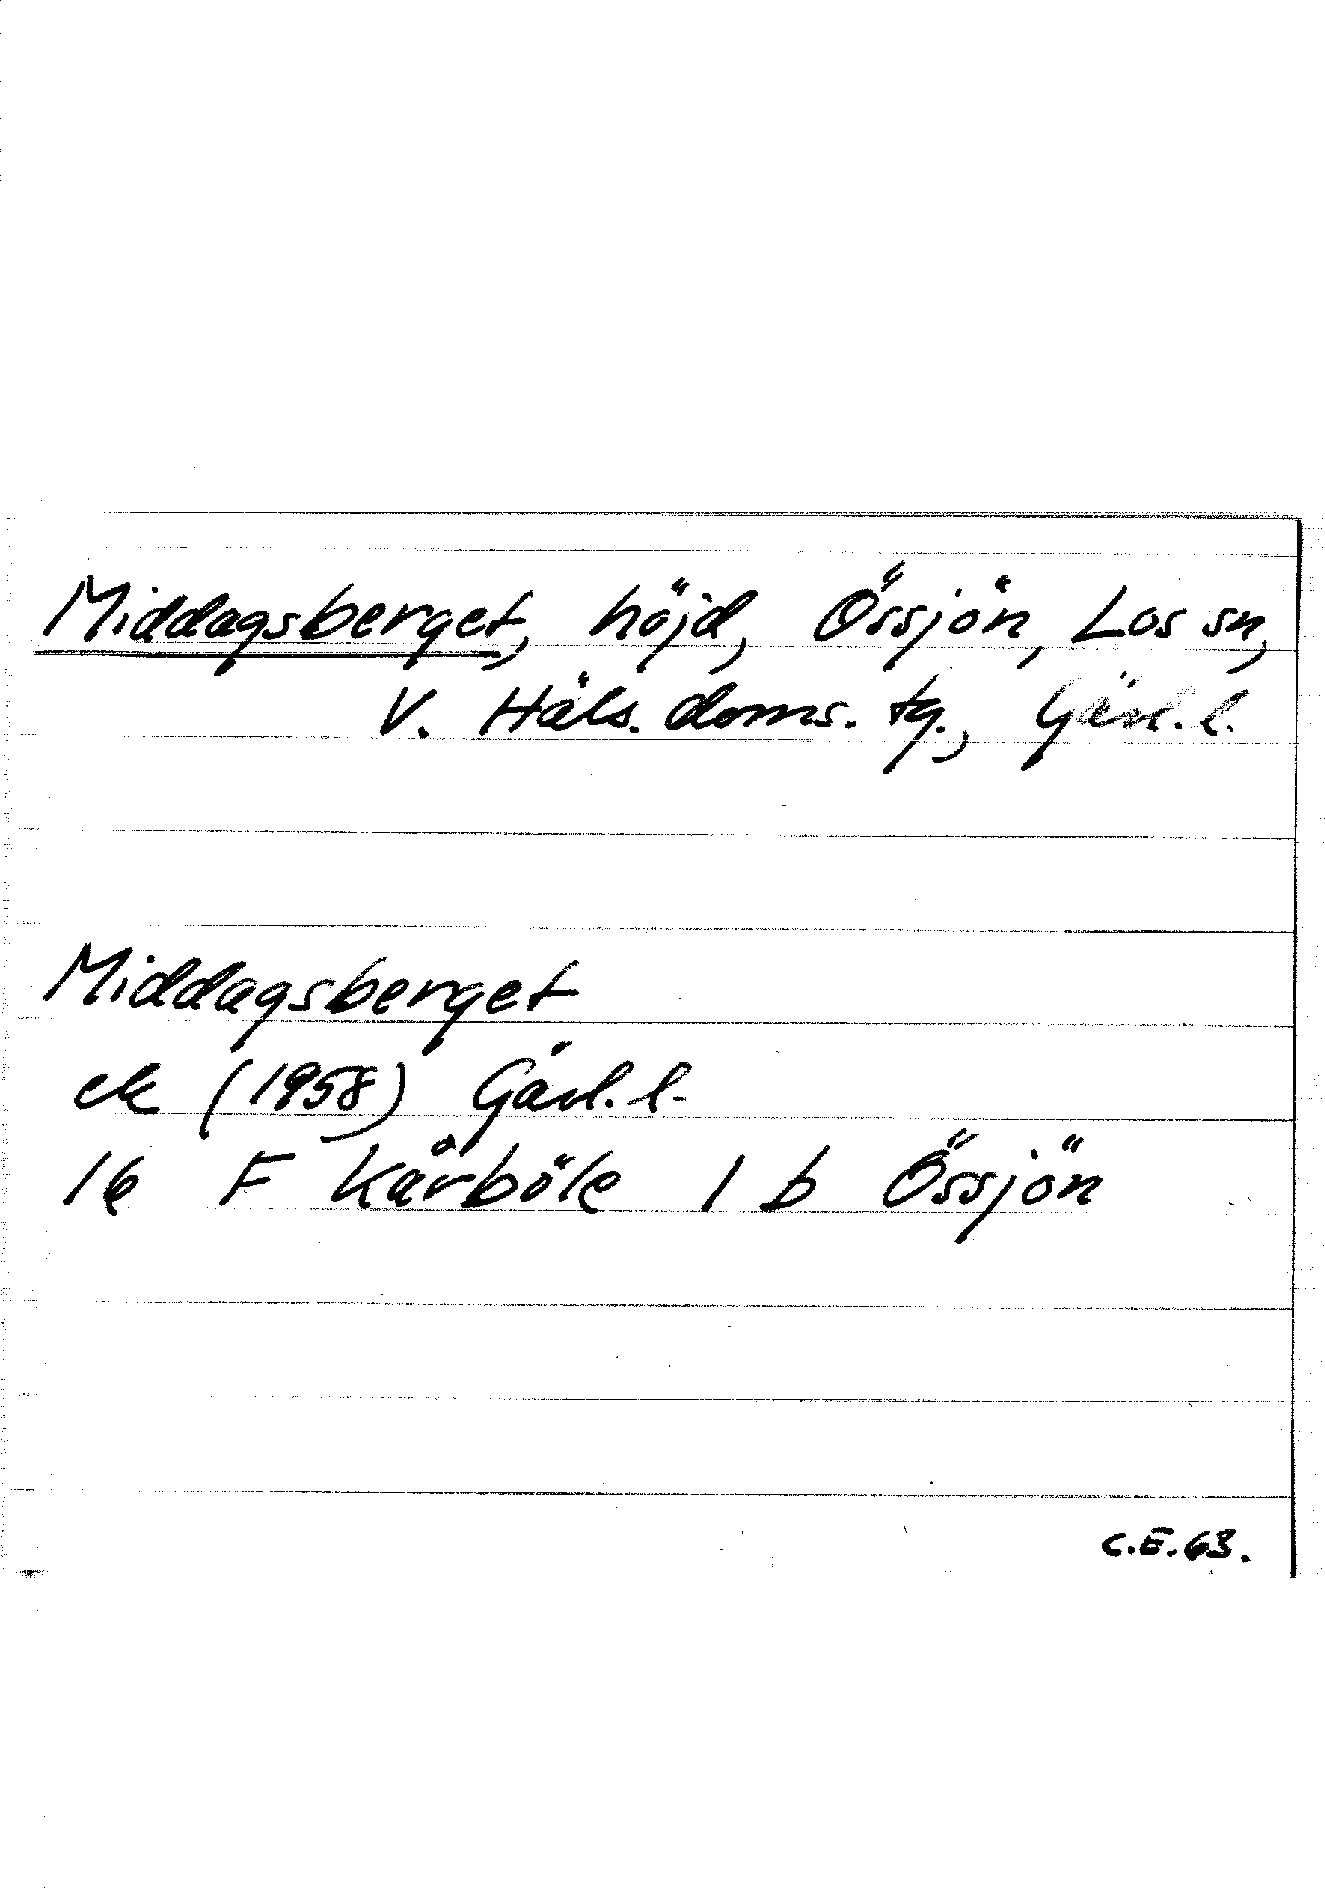 Middagsberget, höjd, Össjön, Los sn,
V. Häls. doms. tg., Gävl. l.
Middagsberget
ek (1958) Gävl. l.
16 F Kårböle 1 b Össjön
C.E. 63.